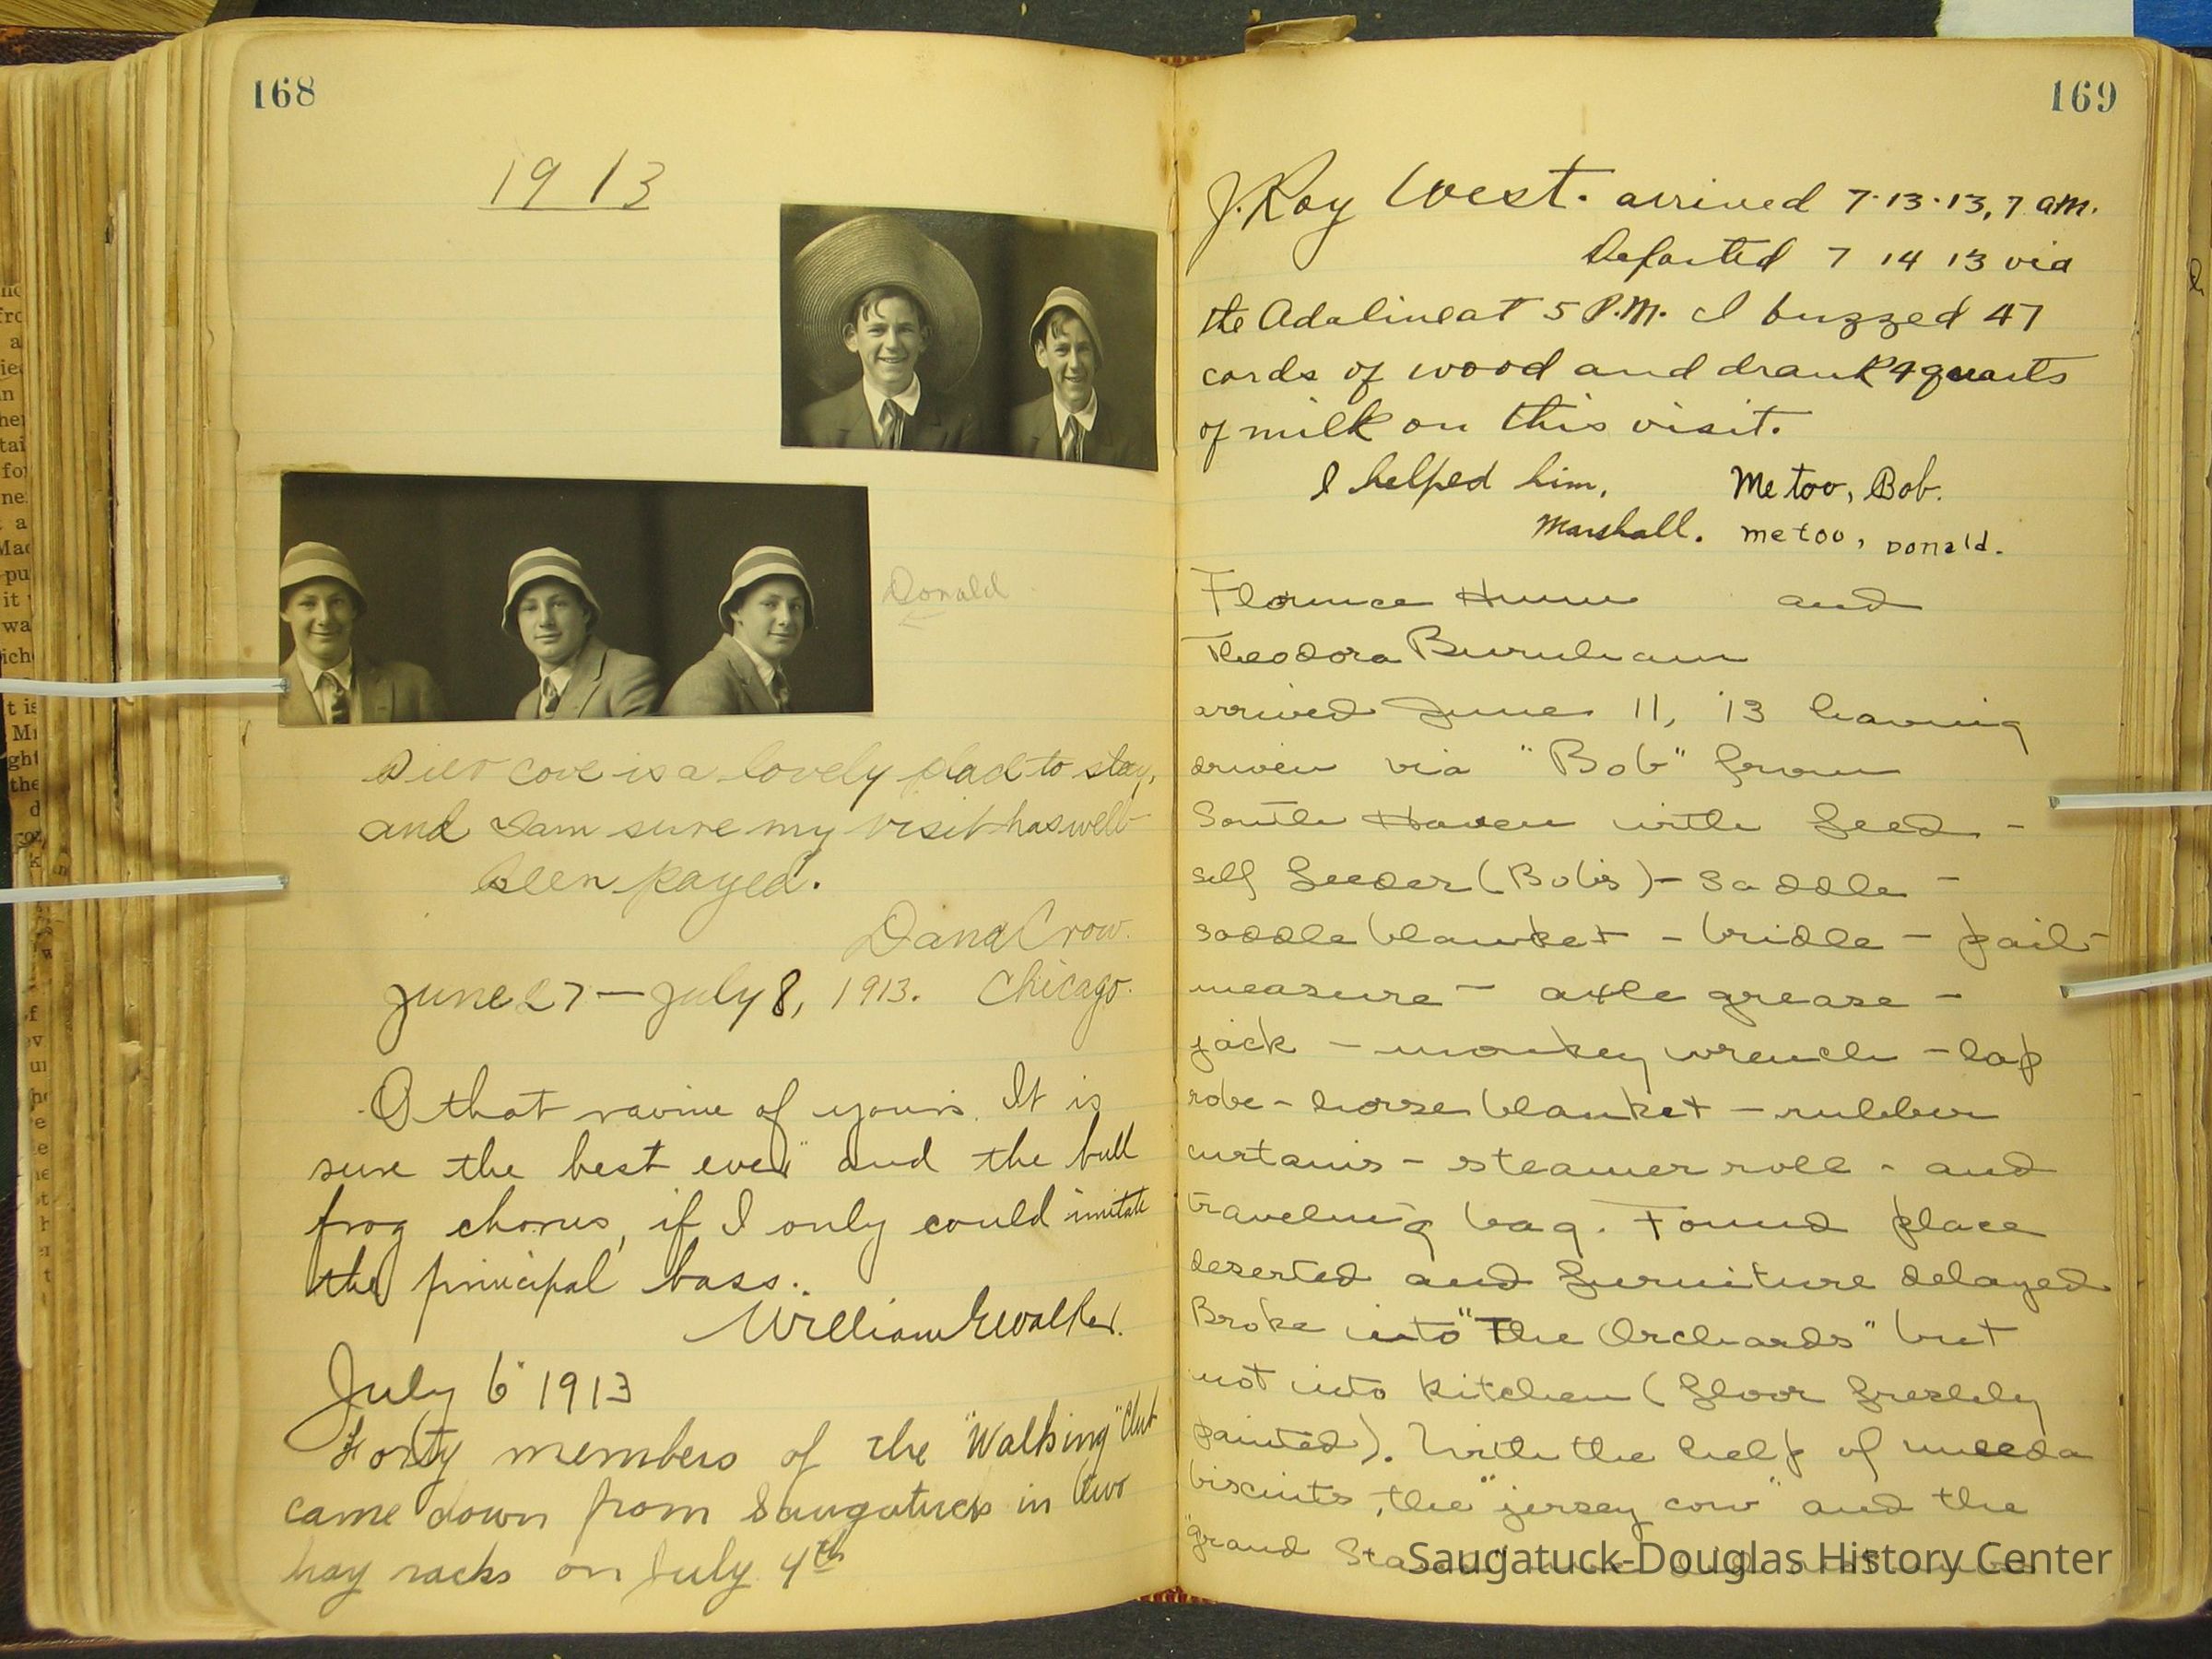 168
1913
Donald
cove is a lovely place to stay,
and I am sure my visit has well
been payed.
Dana Crow.
June 27 — July 8, 1913. Chicago.
O that ravine of yours. It is
sure the best ever" and the bull
frog chorus, if I only could imitate
the principal bass.
William E Walker.
July 6 1913
Forty members of the "Walking" Club
came down from Saugatuck in two
hay racks on July 4th
169
J. Roy West. arrived 7·13·13, 7 am.
Departed 7 14 13 via
the Adaline at 5 P.M. I buzzed 47
cords of wood and drank 4 quarts
of milk on this visit.
I helped him, Me too, Bob.
Marshall. me too, Donald.
Florence Hunn and
Theodora Burnham
arrived June 11, '13 having
driven via "Bob" from
South Haven with feed -
self feeder (Bob's) - saddle -
saddle blanket - bridle - pail -
measure - axle grease -
jack - monkey wrench - lap
robe - horse blanket - rubber
curtains - steamer roll - and
traveling bag. Found place
deserted and furniture delayed
Broke into "The Orchards" but
not into kitchen (floor freshly
painted). With the help of uneeda
biscuits, the "jersey cow" and the
"grand
Saugatuck-Douglas History Center